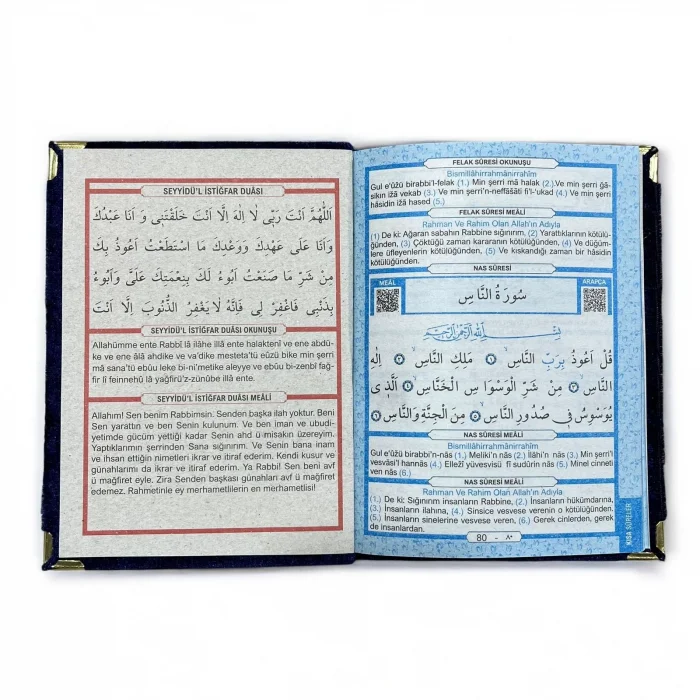 SEYYİDÜ'L İSTİĞFAR DUÂSI
اَللّٰهُمَّ اَنْتَ رَبِّى لَا اِلٰهَ اِلَّا اَنْتَ خَلَقْتَنِى وَ اَنَا عَبْدُكَ
وَاَنَا عَلَى عَهْدِكَ وَوَعْدِكَ مَا اسْتَطَعْتُ اَعُوذُ بِكَ
مِنْ شَرِّ مَا صَنَعْتُ اَبُوءُ لَكَ بِنِعْمَتِكَ عَلَىَّ وَاَبُوءُ
بِذَنْبِى فَاغْفِرْ لِى فَاِنَّهُ لَا يَغْفِرُ الذُّنُوبَ اِلَّا اَنْتَ
SEYYİDÜ'L İSTİĞFAR DUÂSI OKUNUŞU
Allahümme ente Rabbî lâ ilâhe illâ ente halaktenî ve ene abdü-
ke ve ene âlâ ahdike ve va'dike mesteta'tü eûzü bike min şerri
mâ sana'tü ebûu leke bi-ni'metike aleyye ve ebûu bi-zenbî fağ-
fir lî feinnehû lâ yağfirü'z-zünûbe illâ ente.
SEYYİDÜ'L İSTİĞFAR DUÂSI MEÂLİ
Allahım! Sen benim Rabbimsin. Senden başka ilah yoktur. Beni
Sen yarattın ve ben Senin kulunum. Ve ben iman ve ubudi-
yetimde gücüm yettiği kadar Senin ahd ü misakın üzereyim.
Yaptıklarımın şerrinden Sana sığınırım. Ve Senin bana olan
ve ihsan ettiğin nimetleri ikrar ve itiraf ederim. Kendi kusur ve
günahlarımı da ikrar ve itiraf ederim. Ya Rabbi! Sen beni avf
ü mağfiret eyle. Zira Senden başkası günahları avf ü mağfiret
edemez. Rahmetinle ey merhametlilerin en merhametlisi!
FELAK SÛRESİ OKUNUŞU
Bismillâhirrahmânirrahîm
Gul e'ûzü birabbi'l-felak (1.) Min şerri mâ halak (2.) Ve min şerri ğâ-
sikın izâ vekab (3.) Ve min şerri'n-neffâsâti fi'l-'ukad (4.) Ve min şerri
hâsidin izâ hased (5.)
FELAK SÛRESİ MEÂLİ
Rahman Ve Rahim Olan Allah'ın Adıyla
(1) De ki: Ağaran sabahın Rabbine sığınırım, (2) Yarattıklarının kötülü-
ğünden, (3) Çöktüğü zaman karanlığın kötülüğünden, (4) Ve düğüm-
lere üfleyenlerin kötülüğünden, (5) Ve kıskandığı zaman bir hâsidin
kötülüğünden.
NAS SÛRESİ
MEÂL
ARAPÇA
سُورَةُ النَّاسِ
بِسْمِ اللّٰهِ الرَّحْمٰنِ الرَّحِيمِ
قُلْ اَعُوذُ بِرَبِّ النَّاسِ ۙ ١ مَلِكِ النَّاسِ ۙ ٢ اِلٰهِ
النَّاسِ ۙ ٣ مِنْ شَرِّ الْوَسْوَاسِ الْخَنَّاسِ ۙ ٤ اَلَّذِى
يُوَسْوِسُ فِى صُدُورِ النَّاسِ ۙ ٥ مِنَ الْجِنَّةِ وَالنَّاسِ ٦
NAS SÛRESİ MEÂLİ
Bismillâhirrahmânirrahîm
Gul e'ûzü birabbi'n-nâs (1.) Meliki'n nâs (2.) İlâhi'n nâs (3.) Min şerri'l
vesvâsi'l hannâs (4.) Ellezî yüvesvisü fî sudûrin nâs (5.) Minel cinneti
ven nâs (6.)
NAS SÛRESİ MEÂLİ
Rahman Ve Rahim Olan Allah'ın Adıyla
(1.) De ki: Sığınırım insanların Rabbine, (2.) İnsanların hükümdarına,
(3.) İnsanların ilahına, (4.) Sinsice vesvese verenin o kötülüğünden.
(5.) İnsanların sinelerine vesvese veren, (6.) Gerek cinlerden, gerek
de insanlardan.
80 - ٨٠
KISA SÛRELER